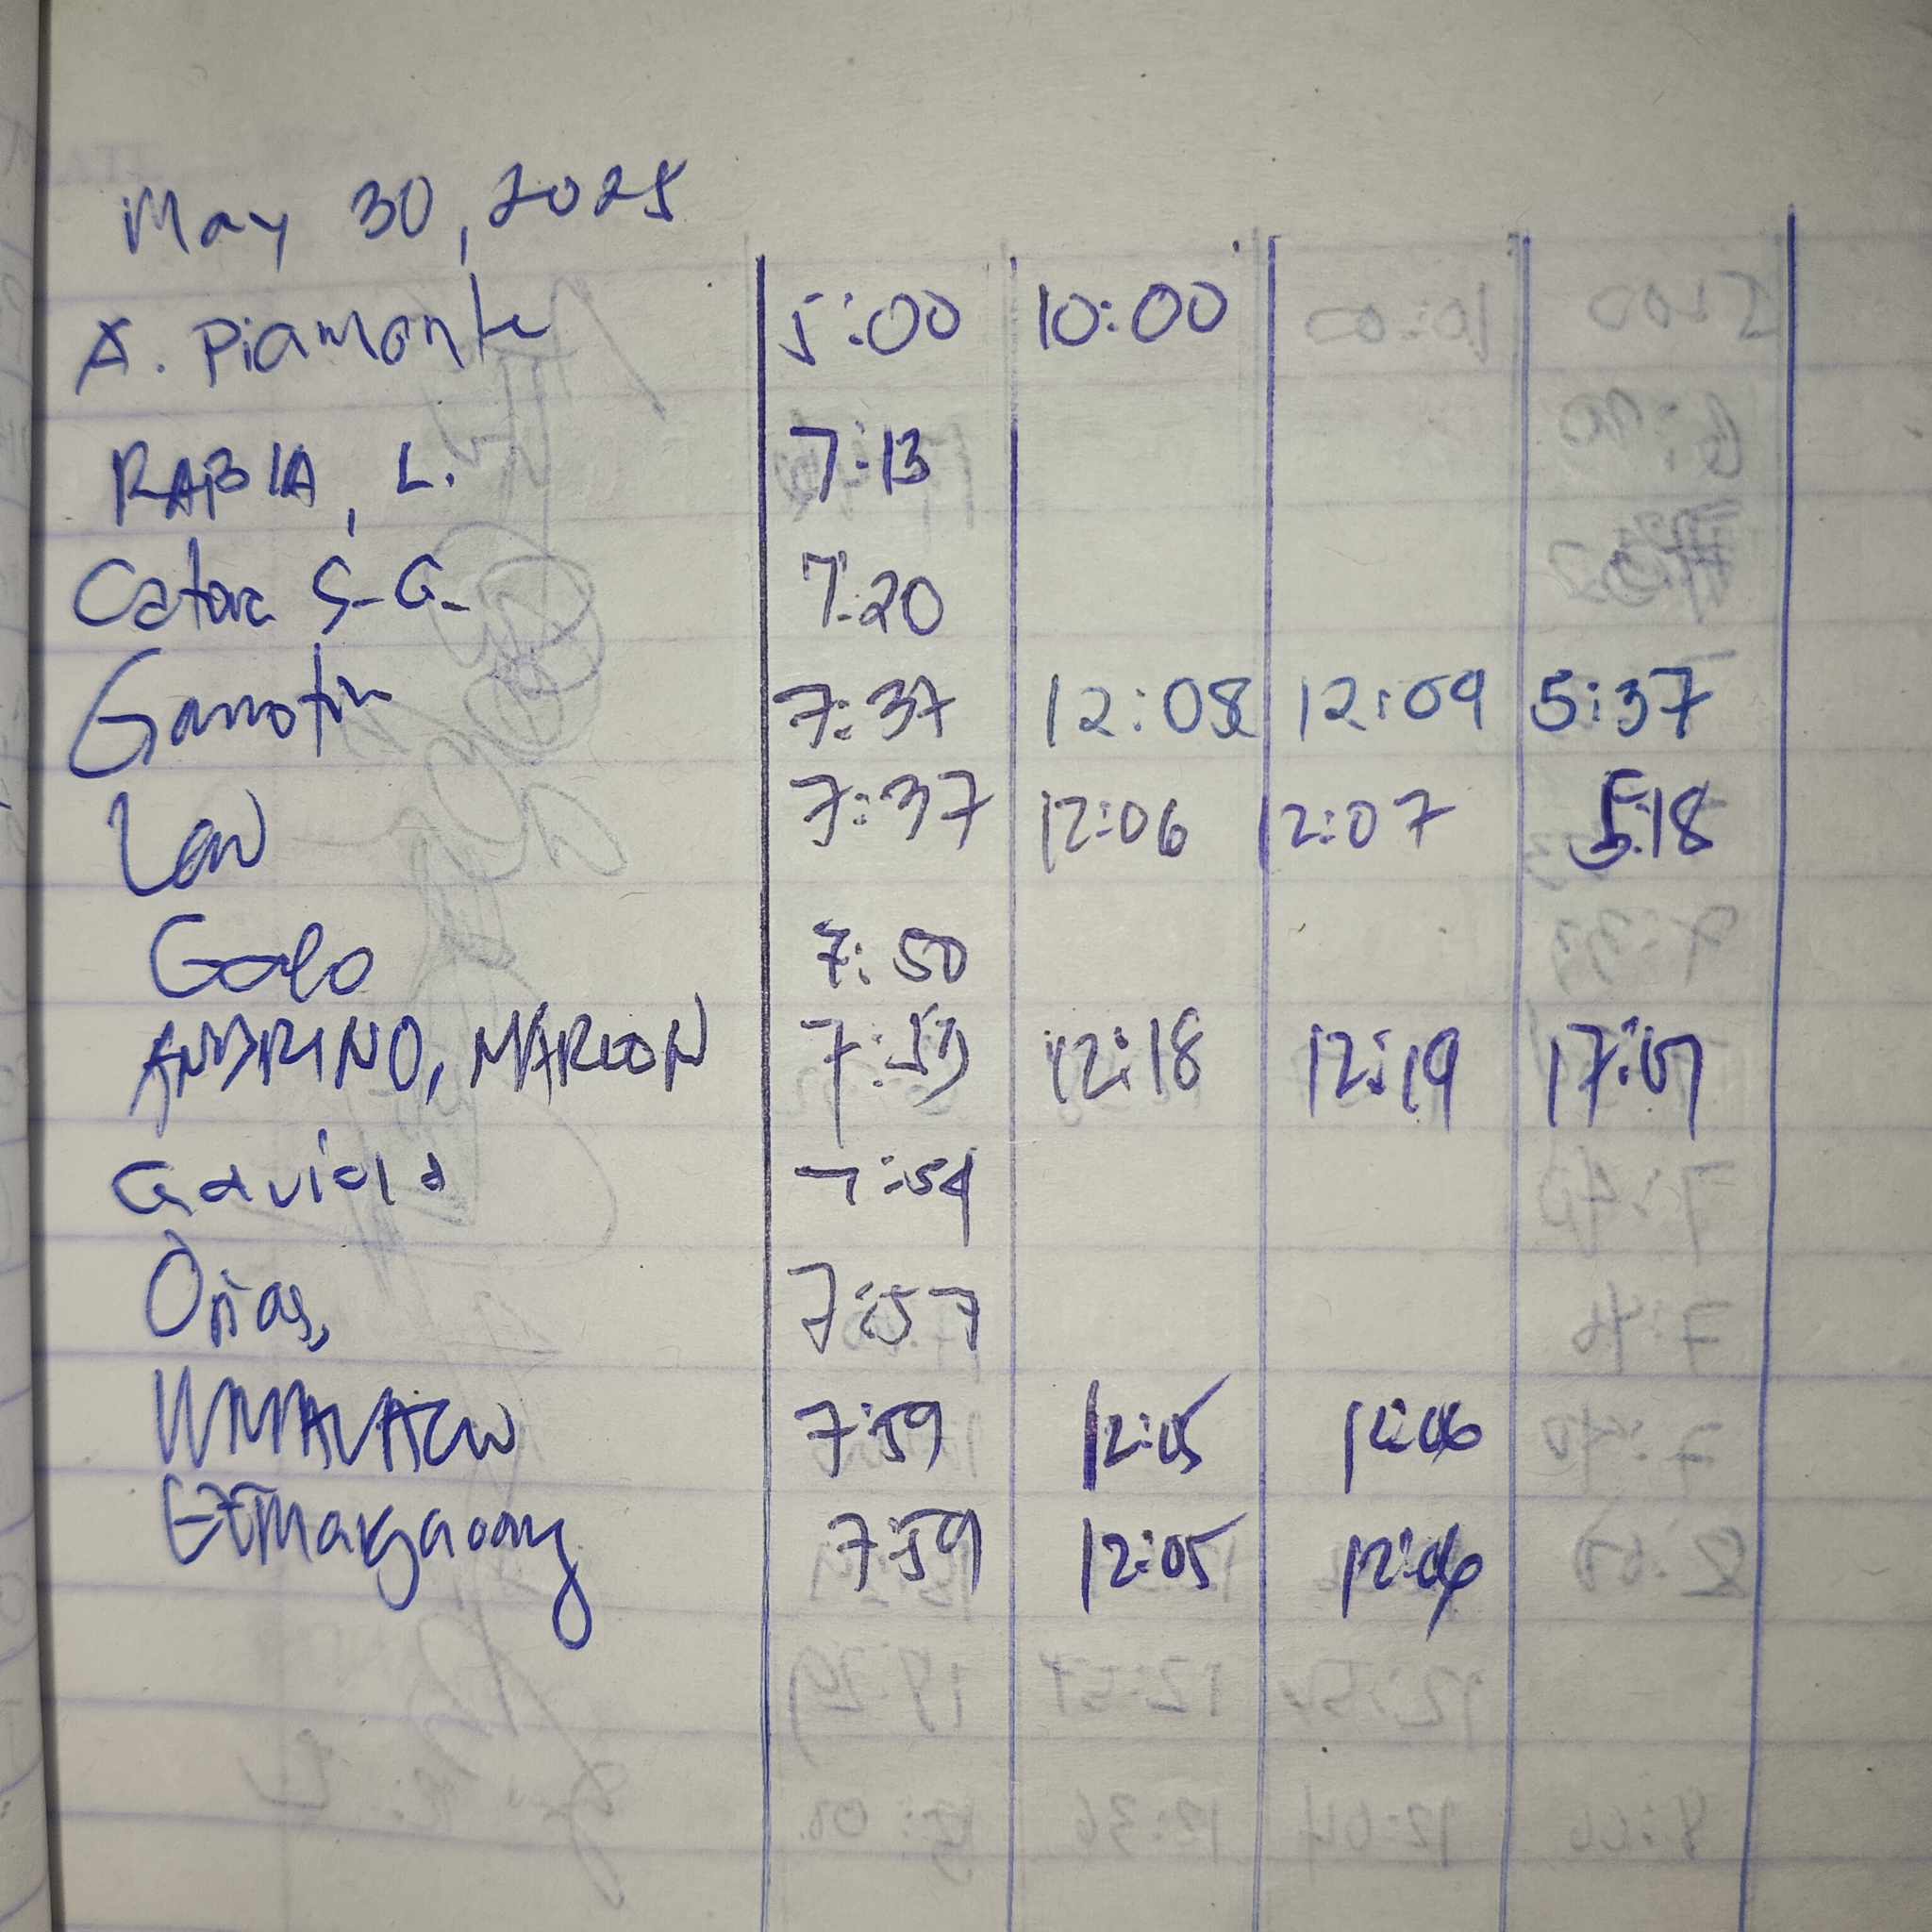 May 30, 2025
A. Piamonte 5:00 10:00
RABIA, L. 7:13
Catora S.G. 7:20
Garrotin 7:37 12:08 12:09 5:37
Law 7:37 12:06 12:07 5:18
Golo 7:50
ANDRINO, MARLON 7:53 12:18 12:19 17:07
Gaviola 7:54
Oñas, 7:57
7:59 12:05 12:06
7:59 12:05 12:06